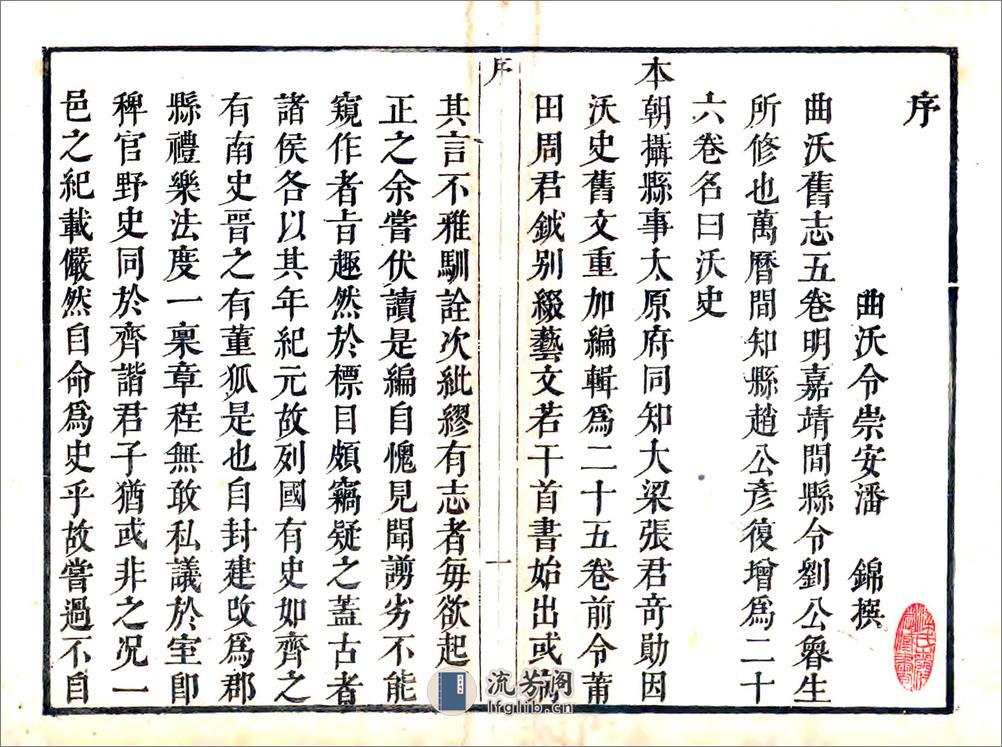 序
曲沃令崇安潘　錦撰
曲沃舊志五卷明嘉靖間縣令劉公魯生
所修也萬曆間知縣趙公彥復增爲二十
六卷名曰沃史
本朝攝縣事太原府同知大梁張君奇勛因
沃史舊文重加編輯爲二十五卷前令莆
田周君鉞别綴藝文若干首書始出或
序
一
其言不雅馴詮次紕繆有志者每欲起
正之余嘗伏讀是編自愧見聞謭劣不能
窺作者㫖趣然於標目頗竊疑之蓋古者
諸侯各以其年紀元故列國有史如齊之
有南史晉之有董狐是也自封建改爲郡
縣禮樂法度一稟章程無敢私議於室卽
稗官野史同於齊諧君子猶或非之况一
邑之紀載儼然自命爲史乎故嘗過不自
流芳阁
lfglib.cn